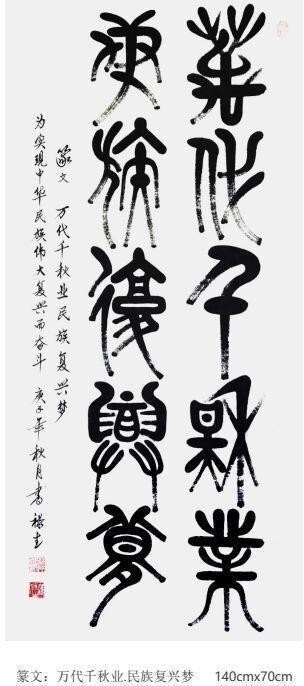 萬代千秋業
民族復興夢
篆文 万代千秋业民族复兴梦
为实现中华民族伟大复兴而奋斗 庚子年秋月书
篆文：万代千秋业.民族复兴梦 140cmx70cm